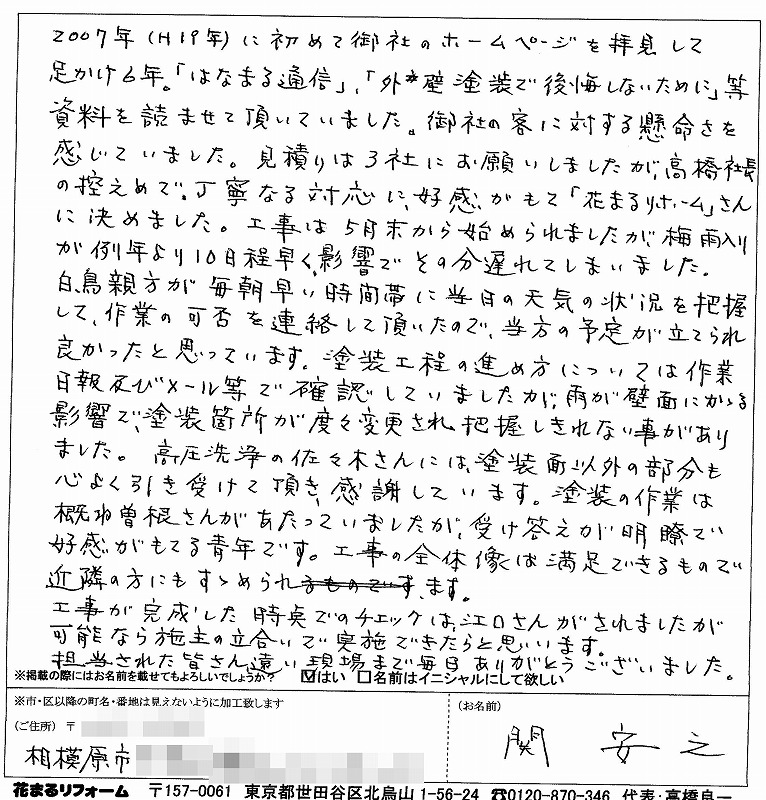 2007年(H19年)に初めて御社のホームページを拝見して
足かけ6年。「はなまる通信」、「外壁塗装で後悔しないために」等
資料を読ませて頂いていました。御社の客に対する懸命さを
感じていました。見積りは3社にお願いしましたが、高橋社長
の控えめで、丁寧なる対応に、好感がもて「花まるリホーム」さん
に決めました。工事は5月末から始められましたが、梅雨入り
が例年より10日程早く、影響でその分遅れてしまいました。
白鳥親方が毎朝早い時間帯に当日の天気の状況を把握
して、作業の可否を連絡して頂いたので、当方の予定が立てられ
良かったと思っています。塗装工程の進め方については作業
日報及びメール等で確認していましたが、雨が壁面にかかる
影響で、塗装箇所が度々変更され、把握しきれない事があり
ました。高圧洗浄の佐々木さんには、塗装面以外の部分も
心よく引き受けて頂き、感謝しています。塗装の作業は
概ね曽根さんがあたっていましたが、受け答えが明瞭で
好感がもてる青年です。工事の全体像は満足できるもので
近隣の方にもすゝめられます。
工事が完成した時点でのチェックは、江口さんがされましたが
可能なら施主の立合いで実施できたらと思います。
担当された皆さん遠い現場まで毎日ありがとうございました。
※掲載の際にはお名前を載せてもよろしいでしょうか? ☑はい □名前はイニシャルにして欲しい
※市・区以降の町名・番地は見えないように加工致します
(ご住所) 〒
相模原市
(お名前)
関 安之
花まるリフォーム 〒157-0061 東京都世田谷区北烏山1-56-24 ☎0120-870-346 代表:高橋良一